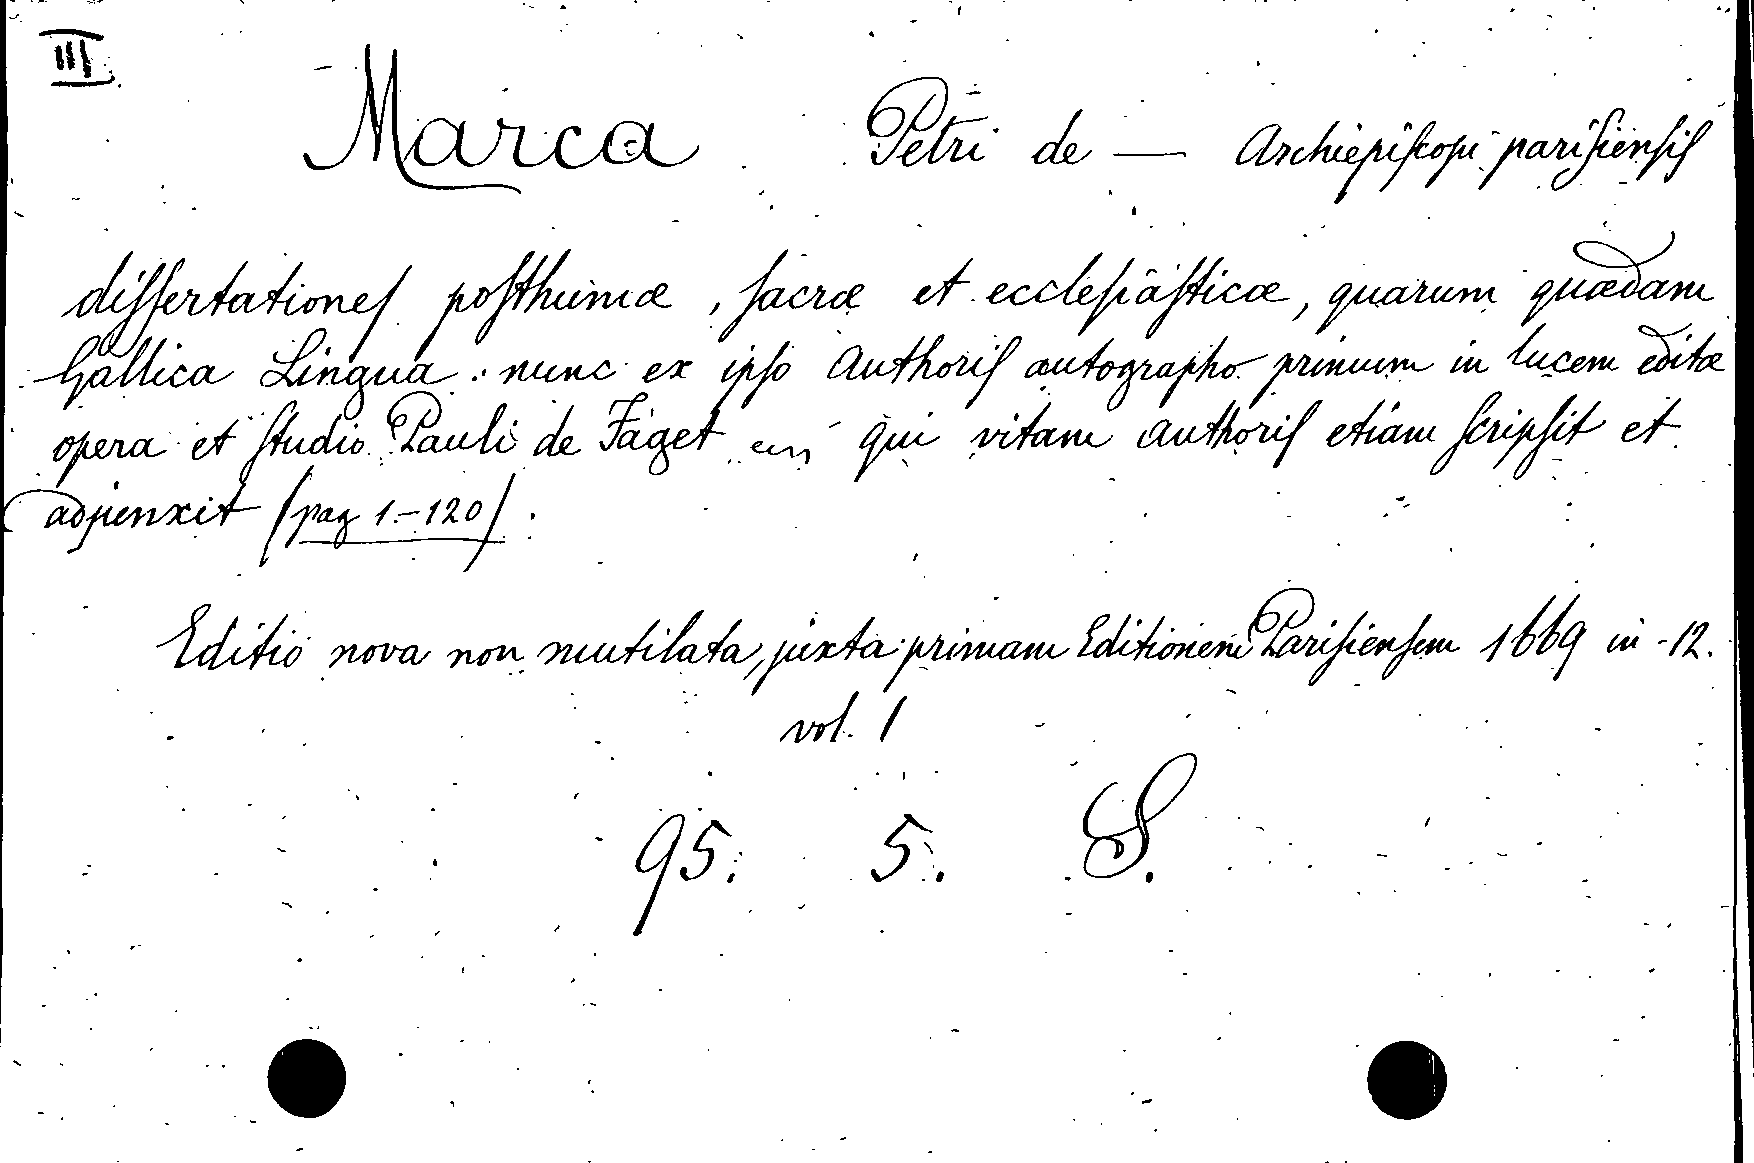 III
Marca Petri de — Archiepiscopi parisiensis
dissertationes posthumæ, sacræ et ecclesiasticæ, quarum quædam
Gallica Lingua : nunc ex ipso Authoris autographo primum in lucem editæ
opera et studio Pauli de Faget qui vitam authoris etiam scripsit et
adjunxit (pag 1.-120).
Editio nova non mutilata, juxta primam Editionem Parisiensem 1669 in-12.
vol. 1
95. 5. S.